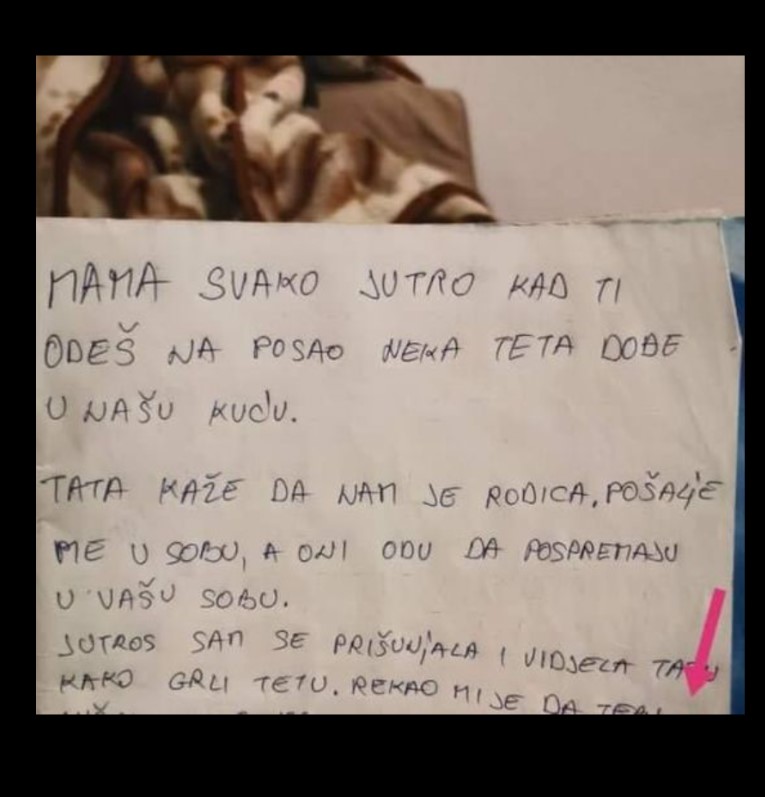 MAMA SVAKO JUTRO KAD TI
ODEŠ NA POSAO NEKA TETA DOĐE
U NAŠU KUĆU.
TATA KAŽE DA NAM JE RODICA, POŠALJE
ME U SOBU, A ONI ODU DA POSPREMAJU
U VAŠU SOBU.
JUTROS SAM SE PRIŠUNJALA I VIDJELA TATU
KAKO GRLI TETU. REKAO MI JE DA TEBI